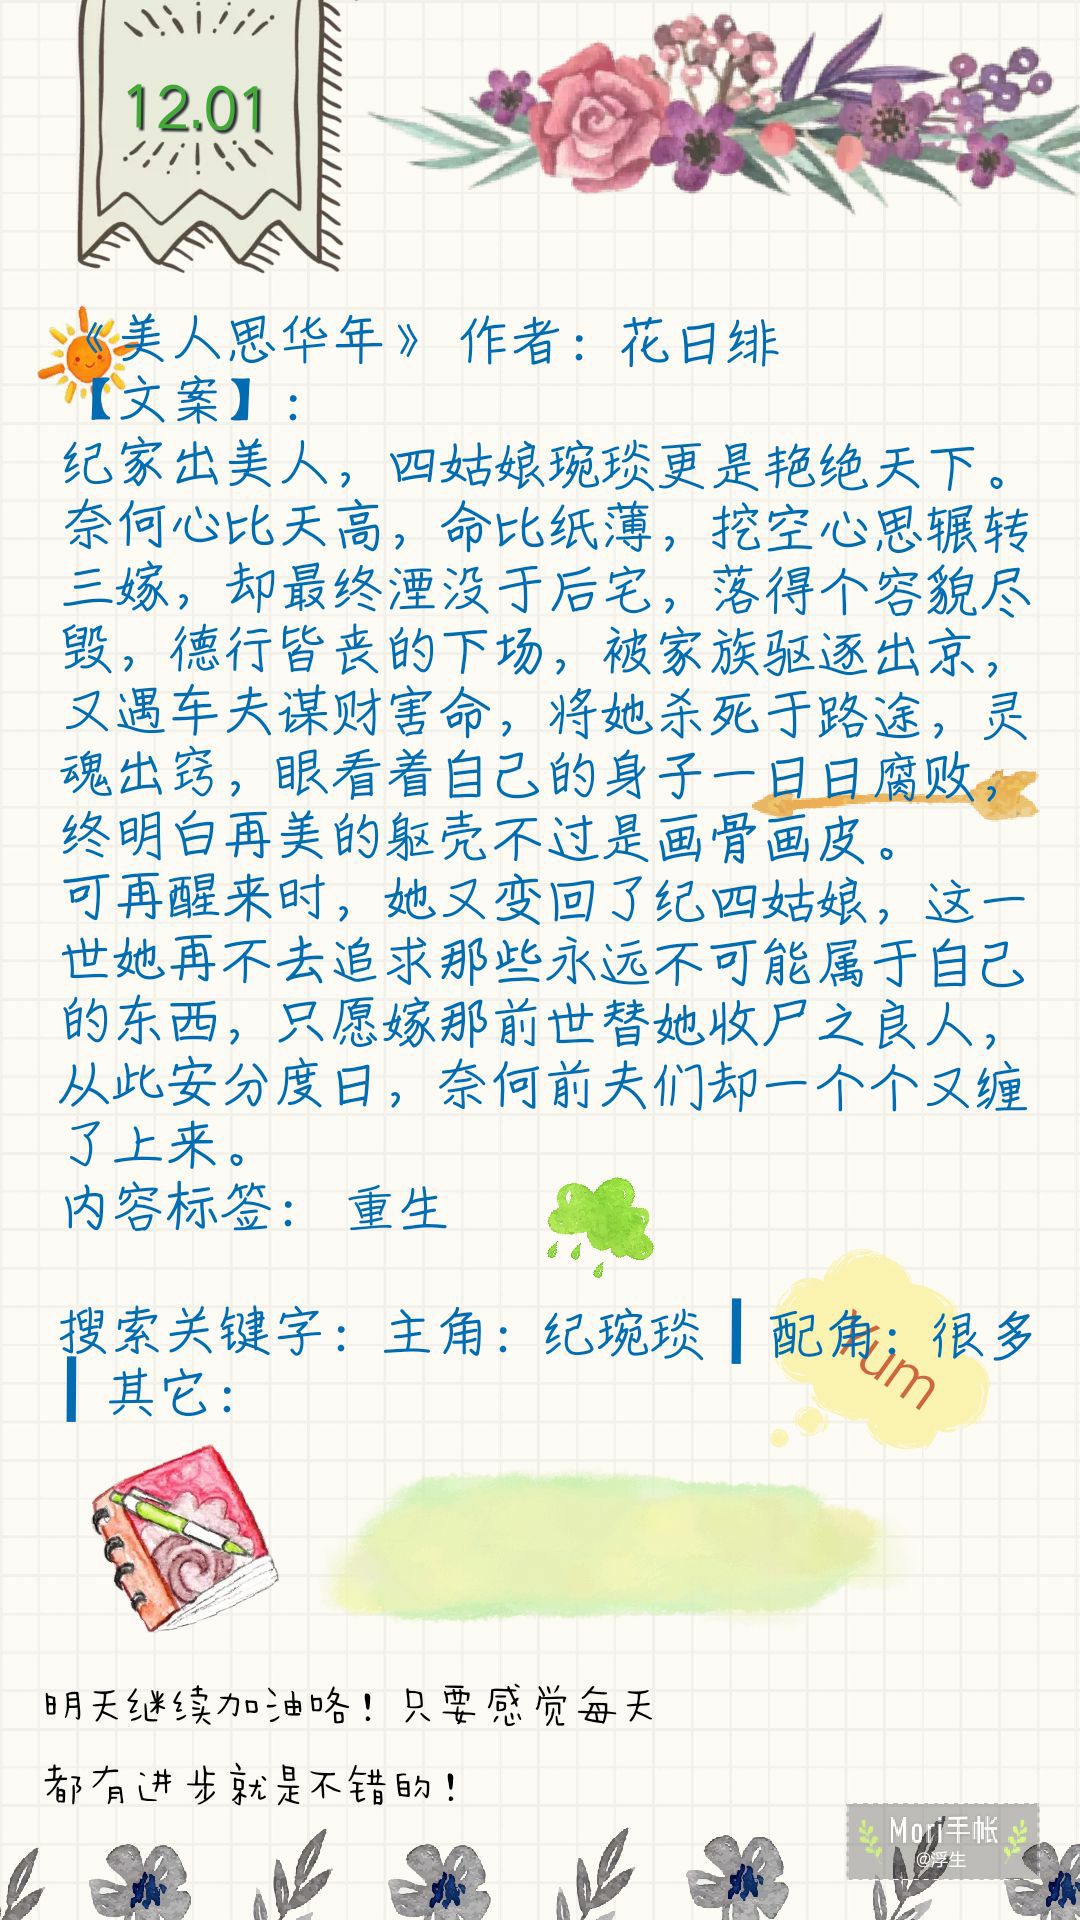 12.01
《美人思华年》 作者：花日绯
【文案】：
纪家出美人，四姑娘琬琰更是艳绝天下。
奈何心比天高，命比纸薄，挖空心思辗转
三嫁，却最终湮没于后宅，落得个容貌尽
毁，德行皆丧的下场，被家族驱逐出京，
又遇车夫谋财害命，将她杀死于路途，灵
魂出窍，眼看着自己的身子一日日腐败，
终明白再美的躯壳不过是画骨画皮。
可再醒来时，她又变回了纪四姑娘，这一
世她再不去追求那些永远不可能属于自己
的东西，只愿嫁那前世替她收尸之良人，
从此安分度日，奈何前夫们却一个个又缠
了上来。
内容标签： 重生
搜索关键字：主角：纪琬琰 ┃ 配角：很多
┃ 其它：
Yum
明天继续加油咯！只要感觉每天
都有进步就是不错的！
Mori手帐
@浮生